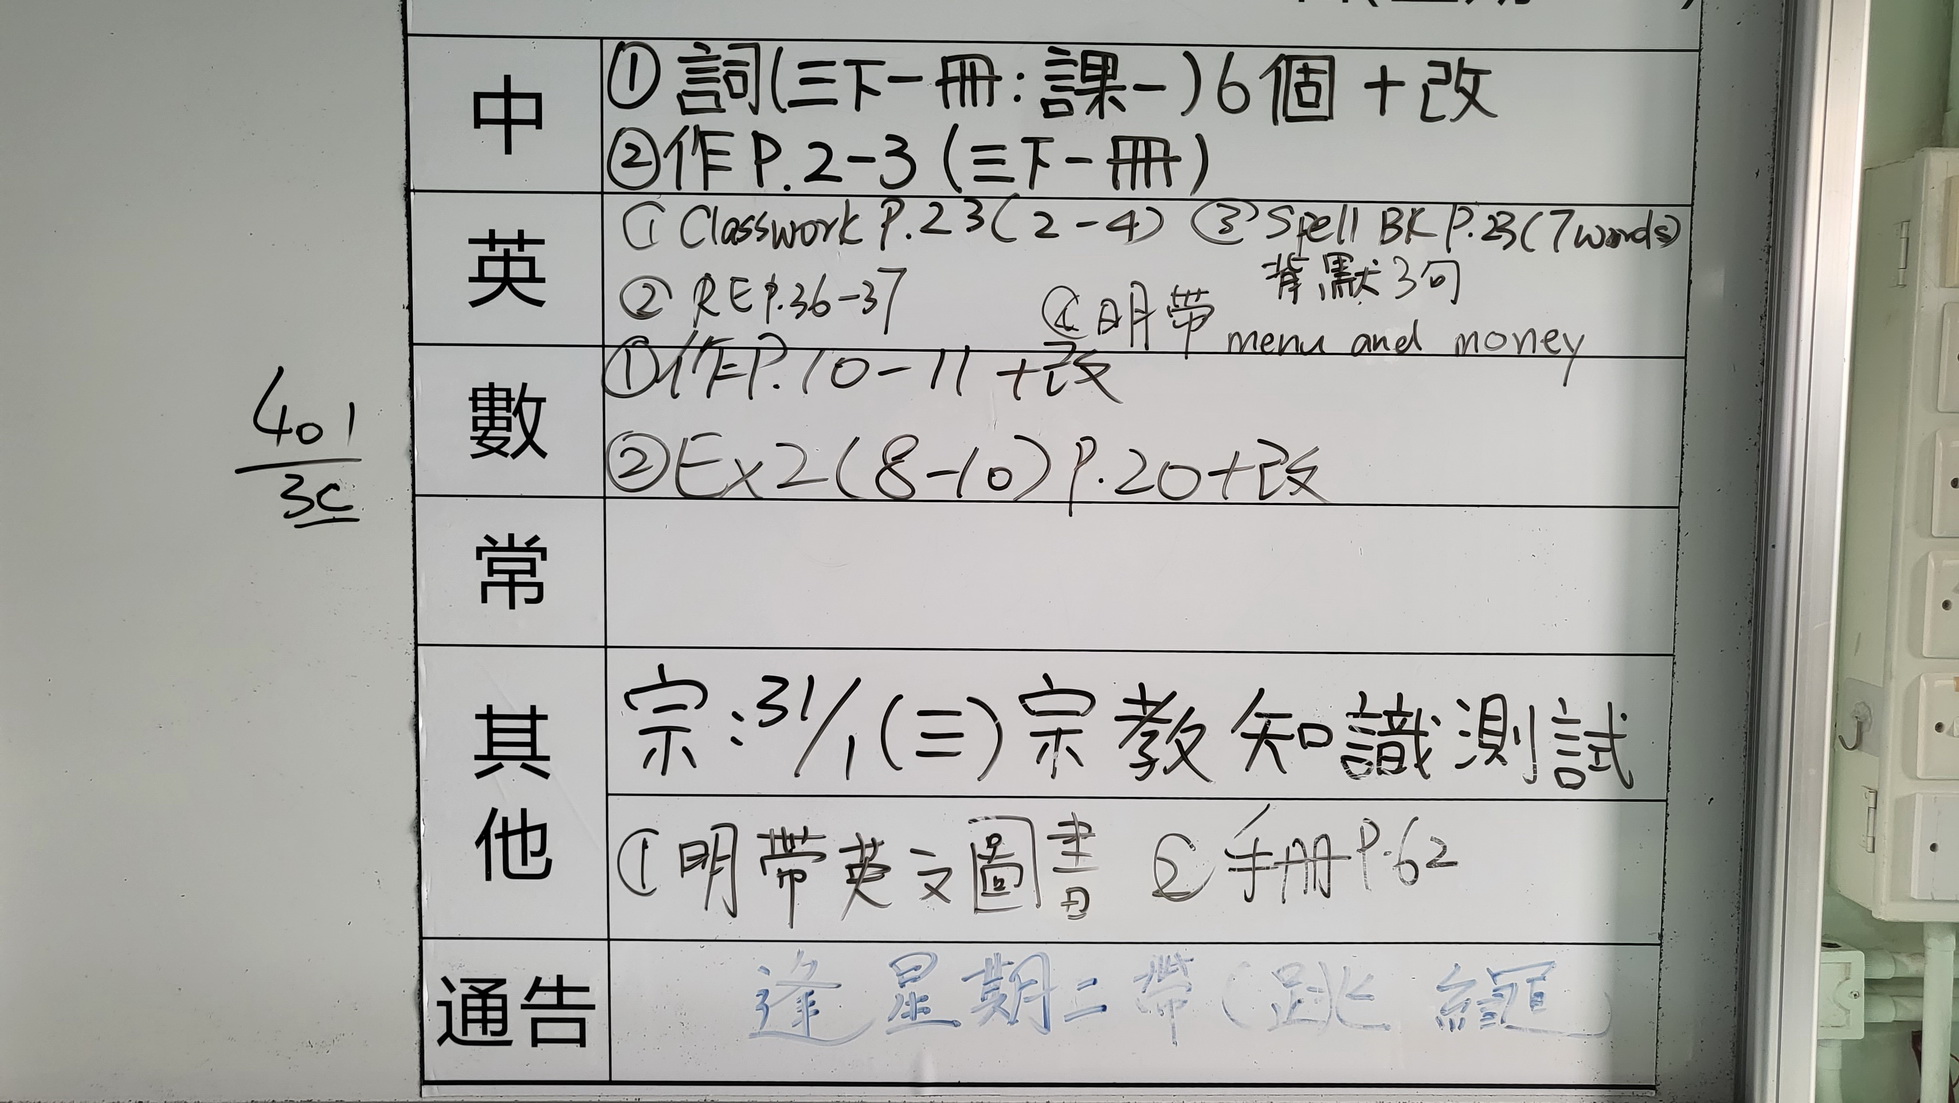 中
① 詞(三下一冊:課一)6個+改
②作P.2-3(三下一冊)
英
① Classwork P.23(2-4) ③ Spell BK P.23(7words)
背默3句
② RE P.36-37
④明帶 menu and money
401
3C
數
①作P.10-11+改
②Ex2(8-10)P.20+改
常
其他
宗:31/1(三)宗教知識測試
①明帶英文圖書 ②手冊P.62
通告
逢星期二帶(跳繩)